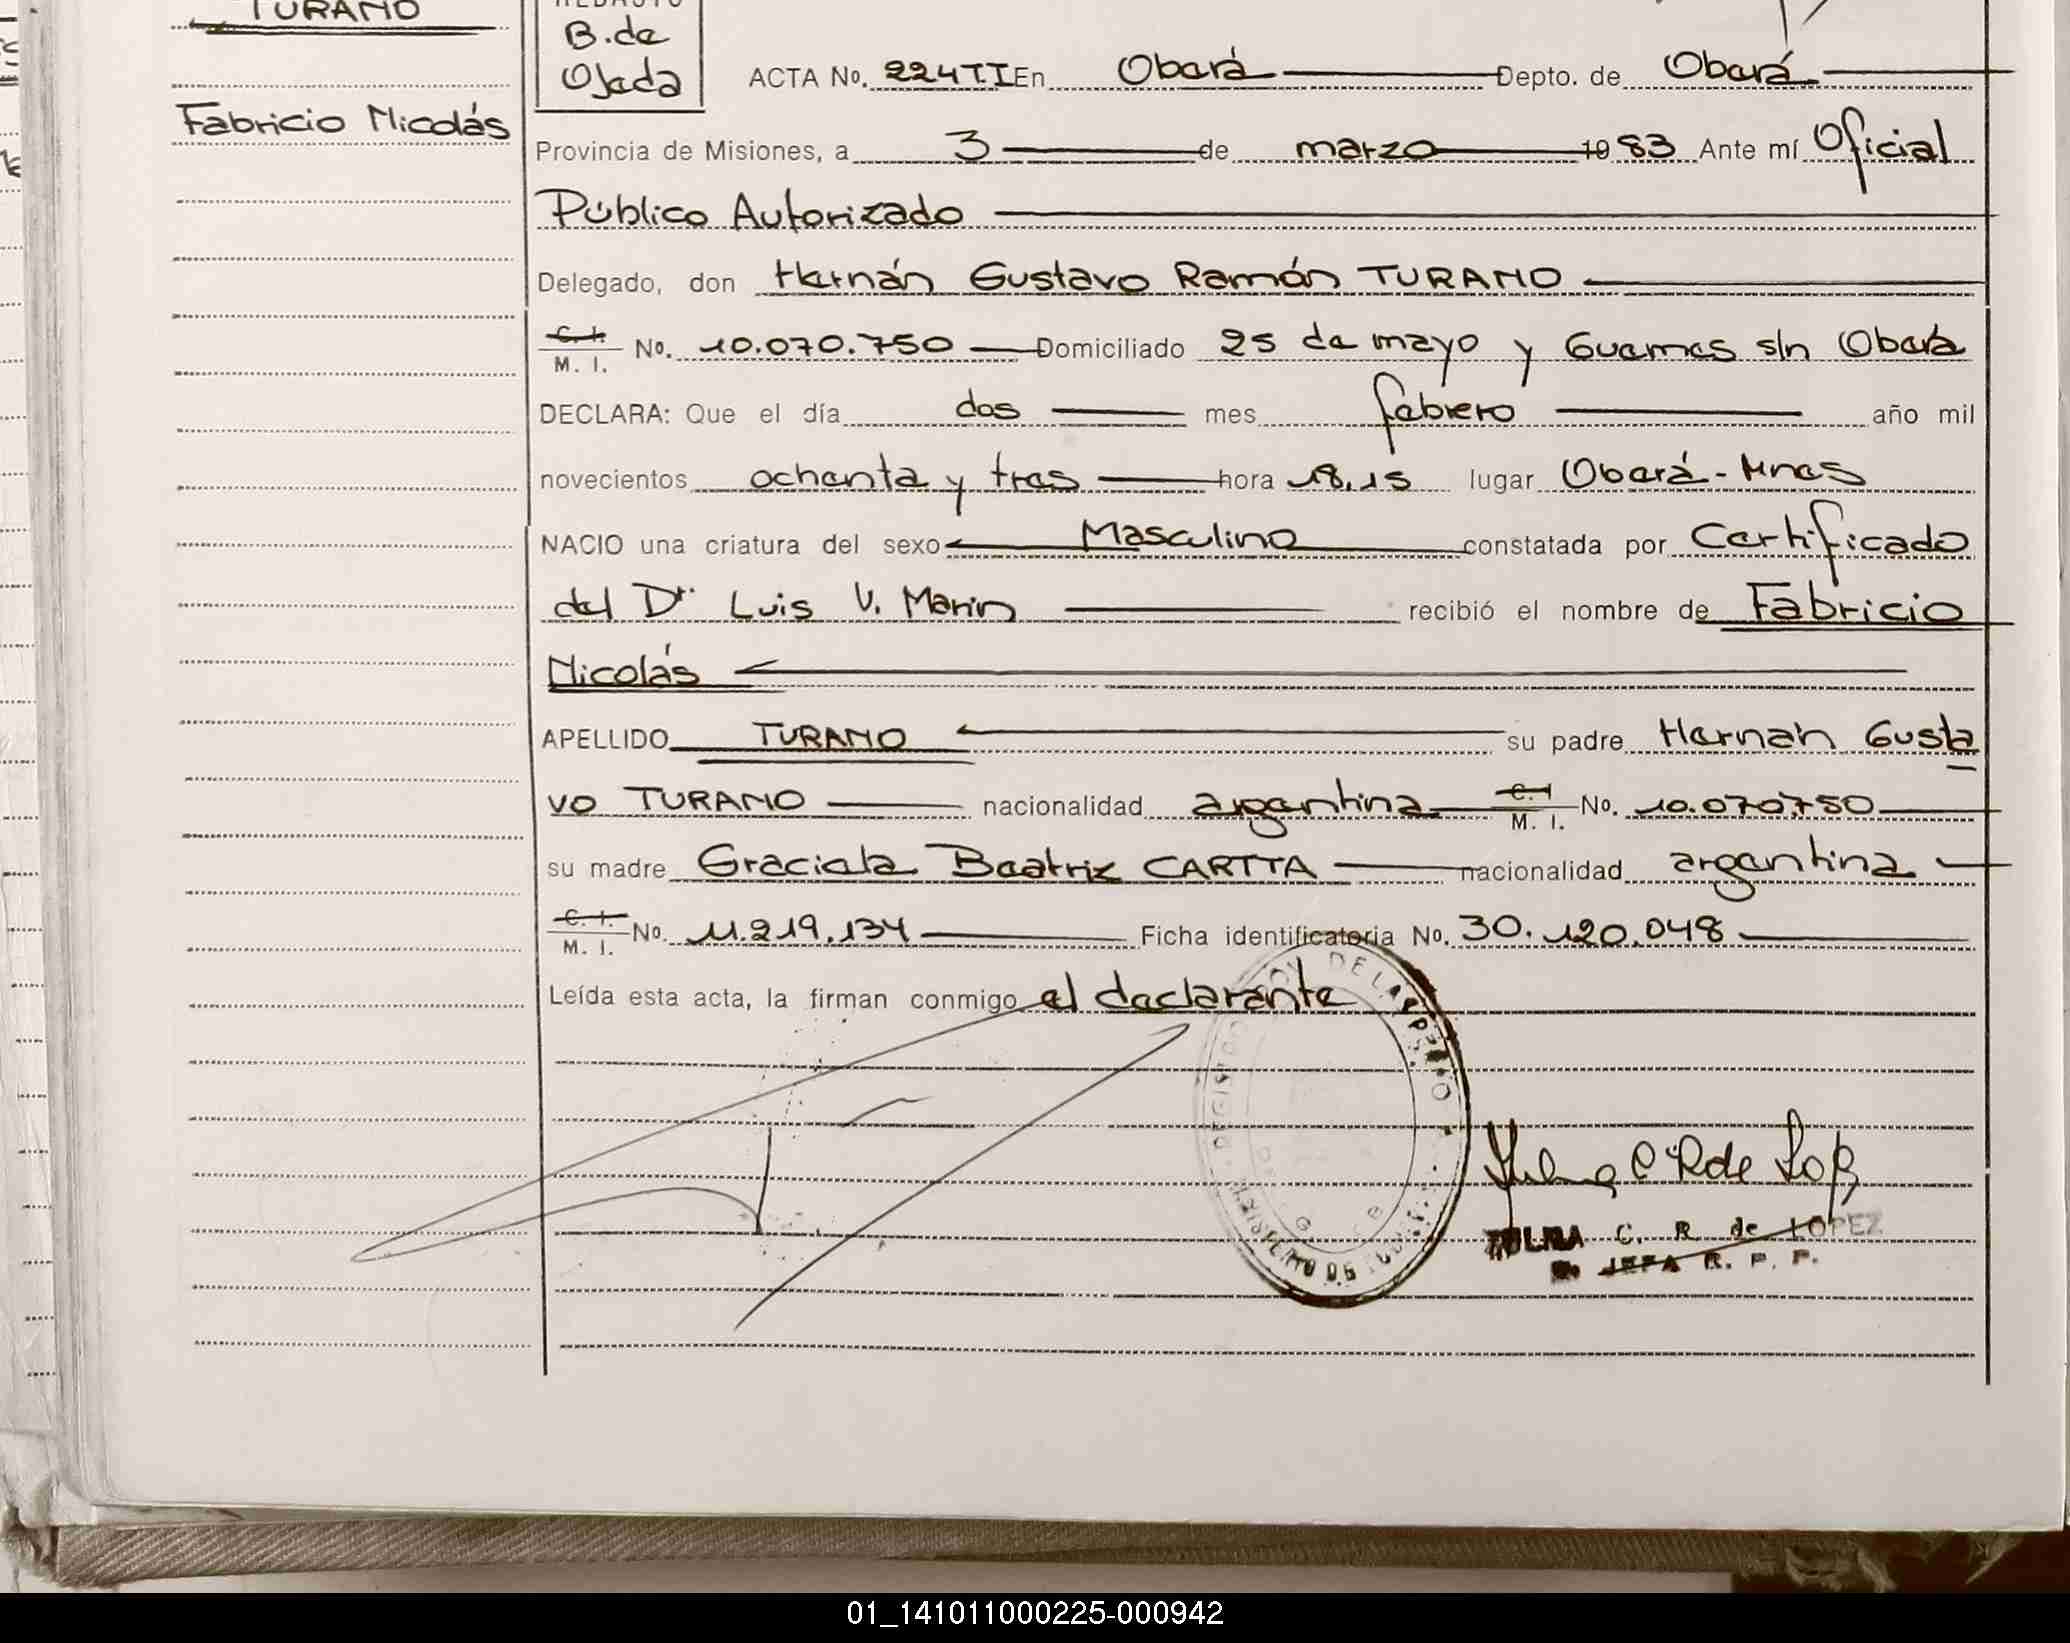 TURANO
REDACTO
B. de
Ojeda
ACTA No. 224 T I En Oberá Depto. de Oberá
Fabricio Nicolás
Provincia de Misiones, a 3 de marzo 19 83 Ante mí Oficial
Público Autorizado
Delegado, don Hernán Gustavo Ramón TURANO
C. I. M. I. No. 10.070.750 Domiciliado 25 de mayo y Guemes s/n Oberá
DECLARA: Que el día dos mes febrero año mil
novecientos ochenta y tres hora 18,15 lugar Oberá - Mnes
NACIO una criatura del sexo Masculino constatada por Certificado
del Dr. Luis V. Marin recibió el nombre de Fabricio
Nicolás
APELLIDO TURANO su padre Hernán Gusta
vo TURANO nacionalidad argentina C. I. M. I. No. 10.070.750
su madre Graciela Beatriz CARTTA nacionalidad argentina
C. I. M. I. No. 11.219.134 Ficha identificatoria No. 30.120.048
Leída esta acta, la firman conmigo el declarante
C. R. de LOPEZ
JEFA R. P. P.
01_141011000225-000942